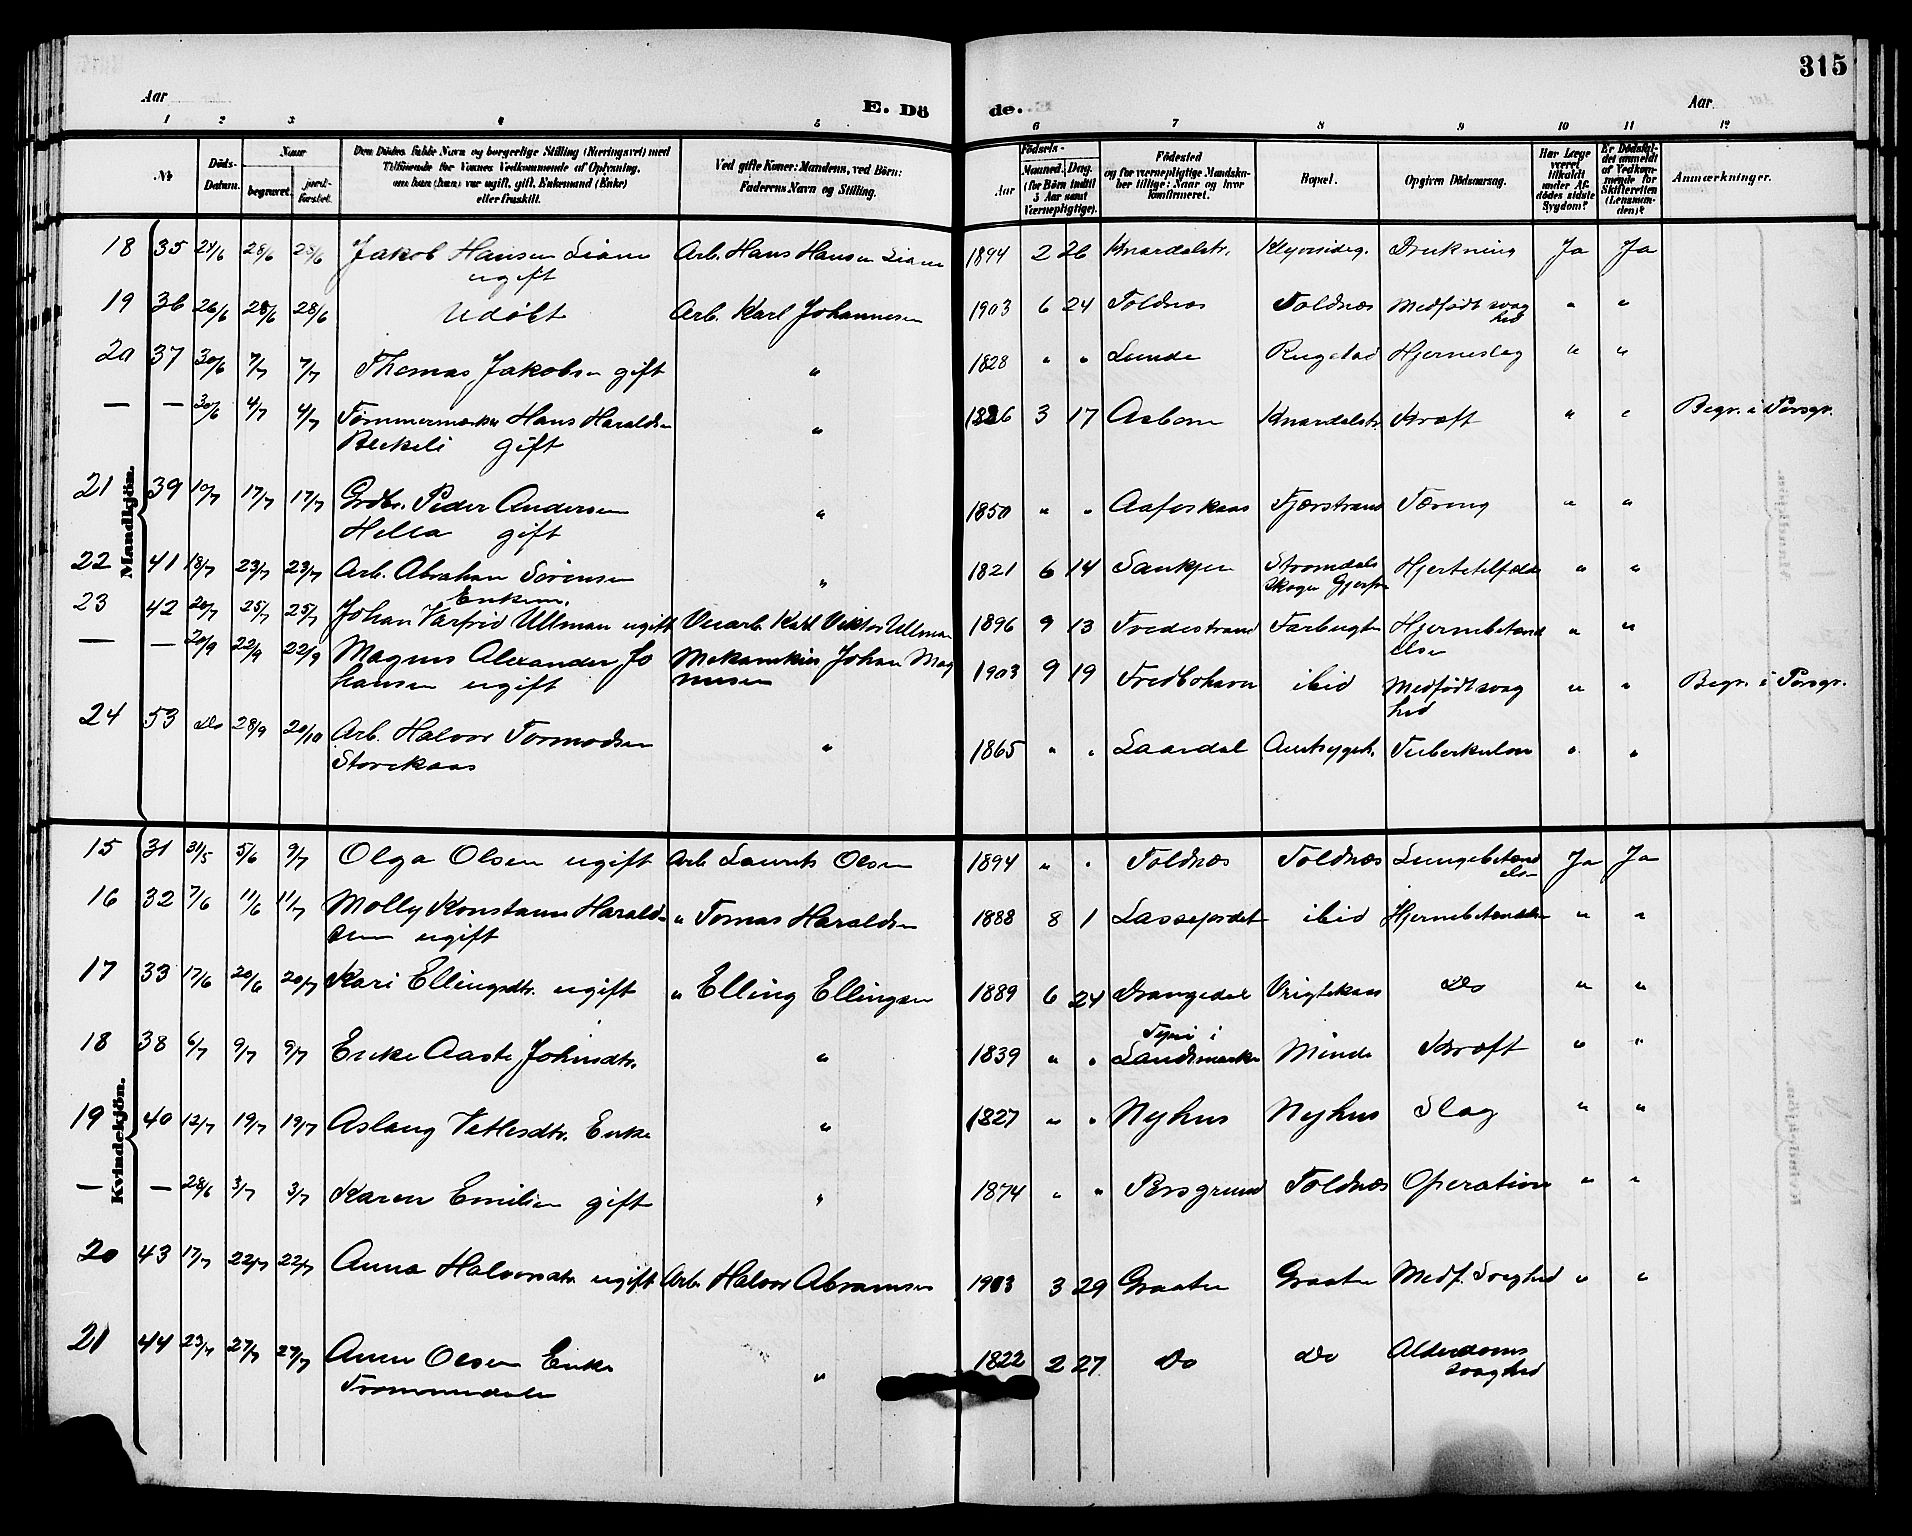 315
Aar
E. Dö
de.
Aar
1 2 3. 4 5 6 7 8 9 10 11 12
No
Döds-Datum.
Naar
begravet.
jord-fæstet.
Den Dödes fulde Navn og borgerlige Stilling (Næringsvei) med
Tilföiende for Voxnes Vedkommende af Oplysning,
om han (hun) var ugift, gift, Enkemand (Enke)
eller fraskilt.
Ved gifte Koner: Mandens, ved Börn:
Faderens Navn og Stilling.
Födsels-
Aar
Maaned. Dag.
(for Börn indtil
5 Aar samt
Værnepligtige).
Födested
og for værnepligtige Mandska-
ber tillige: Naar og hvor
konfirmeret.
Bopæl.
Opgiven Dödsaarsag.
Har Læge
været
tilkaldt
under Af-
dödes sidste
Sygdom?
Er Dödsfal-
det anmeldt
af Vedkom-
mende for
Skifteretten
(Lensman-
den)?
Anmærkninger.
Mandkjön.
18 35 24/6 28/6 28/6 Jakob Hansen Liane Arb. Hans Hansen Liane 1894 2 26 Knardalstr. Drukning Ja Ja
ugift
19 36 26/6 28/6 28/6 Udøbt Arb. Karl Johannesen 1903 6 24 Toldnæs Toldnæs Medfødt svag " "
hed
20 37 30/6 7/7 7/7 Thomas Jakobsen gift " 1828 " " Lunde Hjerneslag " "
— — 30/6 4/7 4/7 Tømmermærker Hans Haralds " 1826 3 17 Knardalstr. Kræft " " Begr. i Porsgr.
gift
21 39 10/7 17/7 17/7 Grdbr. Peder Andersen " 1850 " " Aafoskaas Fjærstrand Tæring " "
Hella gift
22 41 18/7 23/7 23/7 Arb. Abraham Sørensen " 1821 6 14 Strømdals Hjertetilfælde " "
Enkem.
23 42 20/7 25/7 25/7 Johan Varfrid Ullman ugift Karl Viktor Ullman 1896 9 13 Tvedestrand Hjernebetænd " "
else
— — 20/9 22/9 22/9 Magnus Alexander Jo Johan Mag 1903 9 19 ibid Medfødt svag " " Begr. i Porsgr.
hansen ugift nusen hed
24 53 Do 28/9 20/10 Arb. Halvor Tormodsen " 1865 " " Laardal Tuberkulose " "
Storekaas
Kvindekjön.
15 31 31/5 5/6 9/7 Olga Olsen ugift Arb. Laurits Olsen 1894 " " Toldnæs Toldnæs Lungebetænd Ja Ja
else
16 32 7/6 11/6 11/7 Molly Konstanse Harald- " Tomas Haraldsen 1888 8 1 Lassefjordet ibid Hjernebetændelse " "
sen ugift
17 33 17/6 20/6 20/7 Kari Ellingsdtr. ugift " Elling Ellingsen 1889 6 24 Drangedal Vrigtskaas Do " "
18 38 6/7 9/7 9/7 Enke Aaste Johnsdtr. " 1839 " " Landsmarke Minde Kræft " "
19 40 12/7 19/7 19/7 Aslaug Vetlesdtr. Enke " 1827 " " Nyhus Nyhus Slag " "
— — 28/6 3/7 3/7 Karen Emilie gift " 1874 " " Porsgrund Toldnæs Operation " "
20 43 17/7 22/7 22/7 Anna Halvorsdtr. ugift Arb. Halvor Abramsen 1903 3 29 Graaten Graaten Medf. Svaghed " "
21 44 23/7 27/7 27/7 Anne Olsen Enke " 1822 2 27 Do Do Alderdoms
Trommedalen svaghed